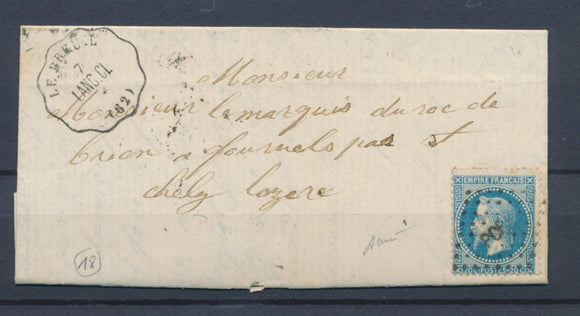 LE BREUIL
7
LANG.CL
(82)
Monsieur
Monsieur le marquis du roc de
brion a fournels par st
chely lozere
EMPIRE FRANÇAIS
20 C POSTES 20 C
18